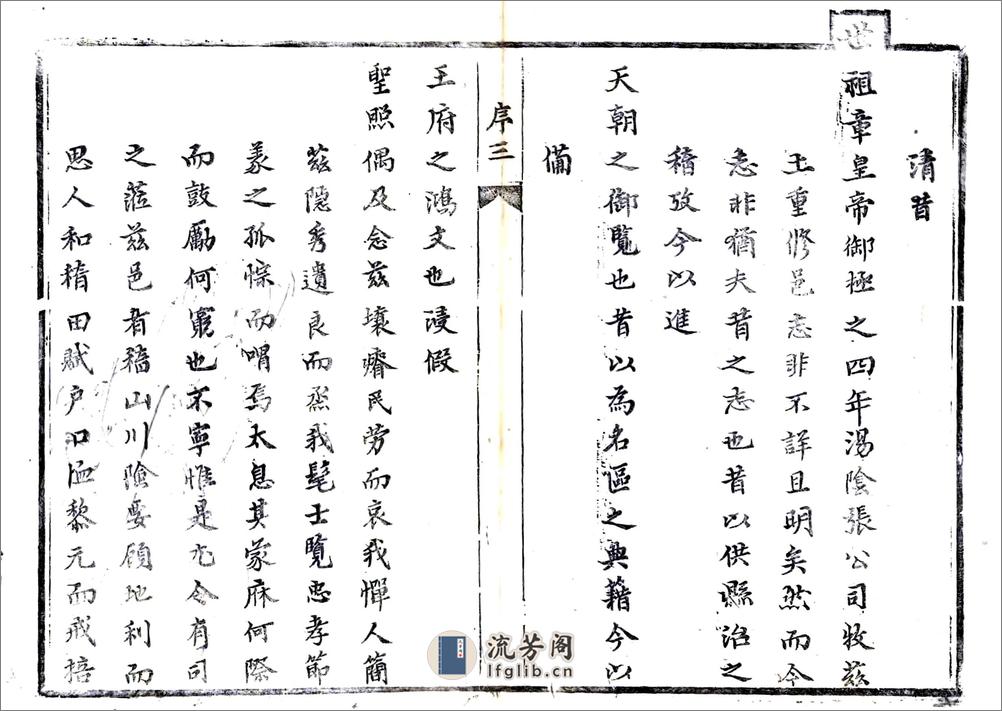 清昔
世
祖章皇帝御極之四年湯陰張公司牧茲
土重修邑志非不詳且明矣然而今
志非猶夫昔之志也昔以供縣治之
稽攷今以進
天朝之御覽也昔以為名區之典籍今以
備
序三
王府之鴻文也浸假
聖照偶及念茲壤瘠民勞而哀我憚人簡
茲隱秀遺良而烝我髦士覽忠孝節
義之孤悰而喟焉太息其蒙庥何際
而鼓勵何窮也不寧惟是凢令有司
之蒞茲邑者稽山川險要顧地利而
思人和稽田賦戶口恤黎元而戒掊
流芳阁
lfglib.cn